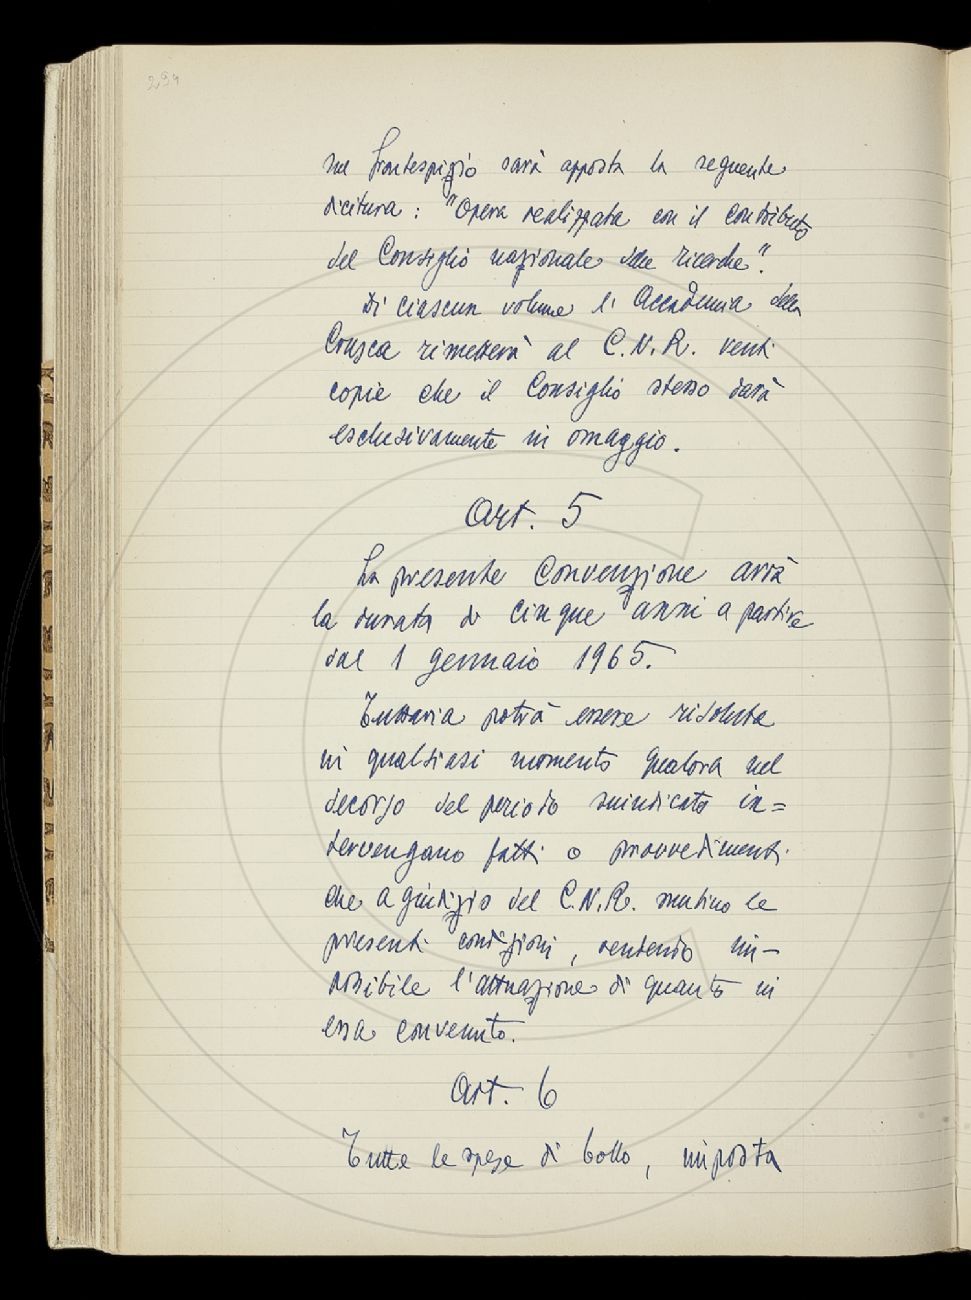 294
sul frontespizio sarà apposta la seguente
dicitura: "Opera realizzata con il contributo
del Consiglio nazionale delle ricerche".
Di ciascun volume l'Accademia della
Crusca rimetterà al C.N.R. venti
copie che il Consiglio stesso darà
esclusivamente in omaggio.
Art. 5
La presente Convenzione avrà
la durata di cinque anni a partire
dal 1 gennaio 1965.
Tuttavia potrà essere risoluta
in qualsiasi momento qualora nel
decorso del periodo suindicato in=
tervengano fatti o provvedimenti
che a giudizio del C.N.R. mutino le
presenti condizioni, rendendo im-
possibile l'attuazione di quanto in
essa convenuto.
Art. 6
Tutte le spese di bollo, imposta